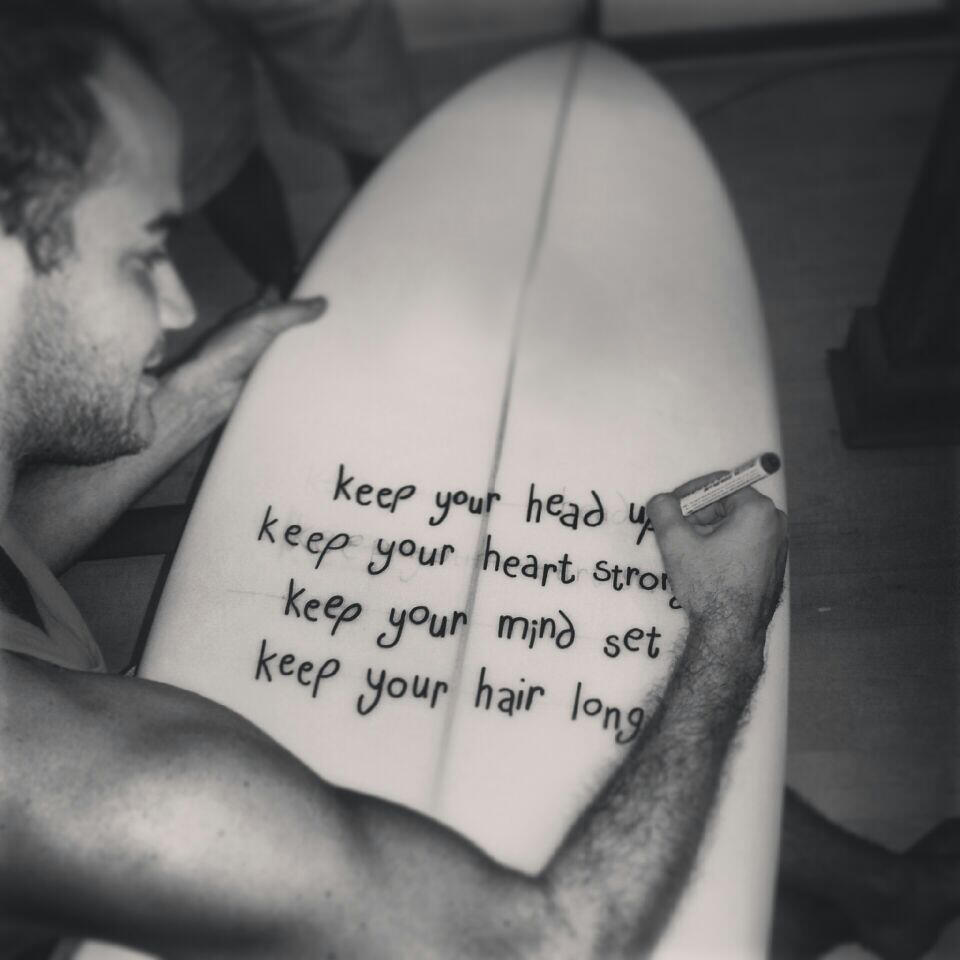 keep your head up
keep your heart strong
keep your mind set
keep your hair long